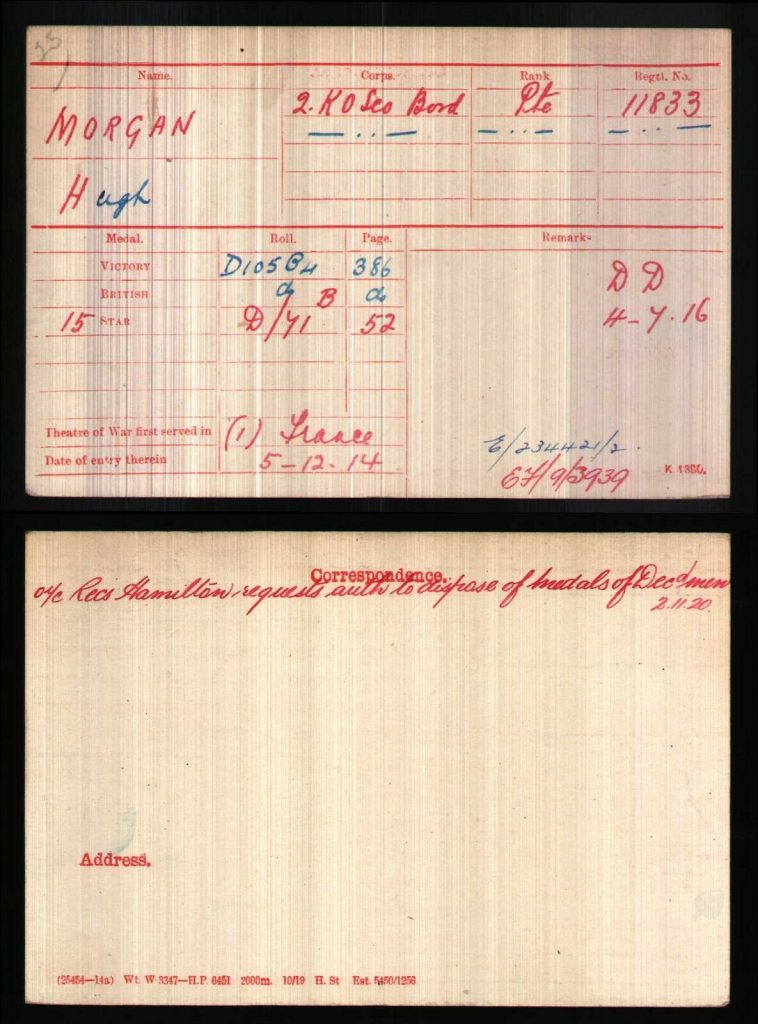 Name. Corps. Rank Regtl. No.
MORGAN 2. K O Sco Bord Pte 11833
— . . — — . . — — . . —
Hugh
Medal. Roll. Page. Remarks
VICTORY D105 B4 386 D D
BRITISH do do
15 STAR D/71 B 52 4-7.16
Theatre of War first served in (1) France
Date of entry therein 5-12.14
E/234421/2.
EF/9/3939
K 1380.
Correspondence.
o/c Recs Hamilton requests auth to dispose of medals of Decd men
2.11.20
Address.
(25454—14a) Wt. W 3347—H.P. 6451 2000m. 10/19 H. St Est. 5450/1256